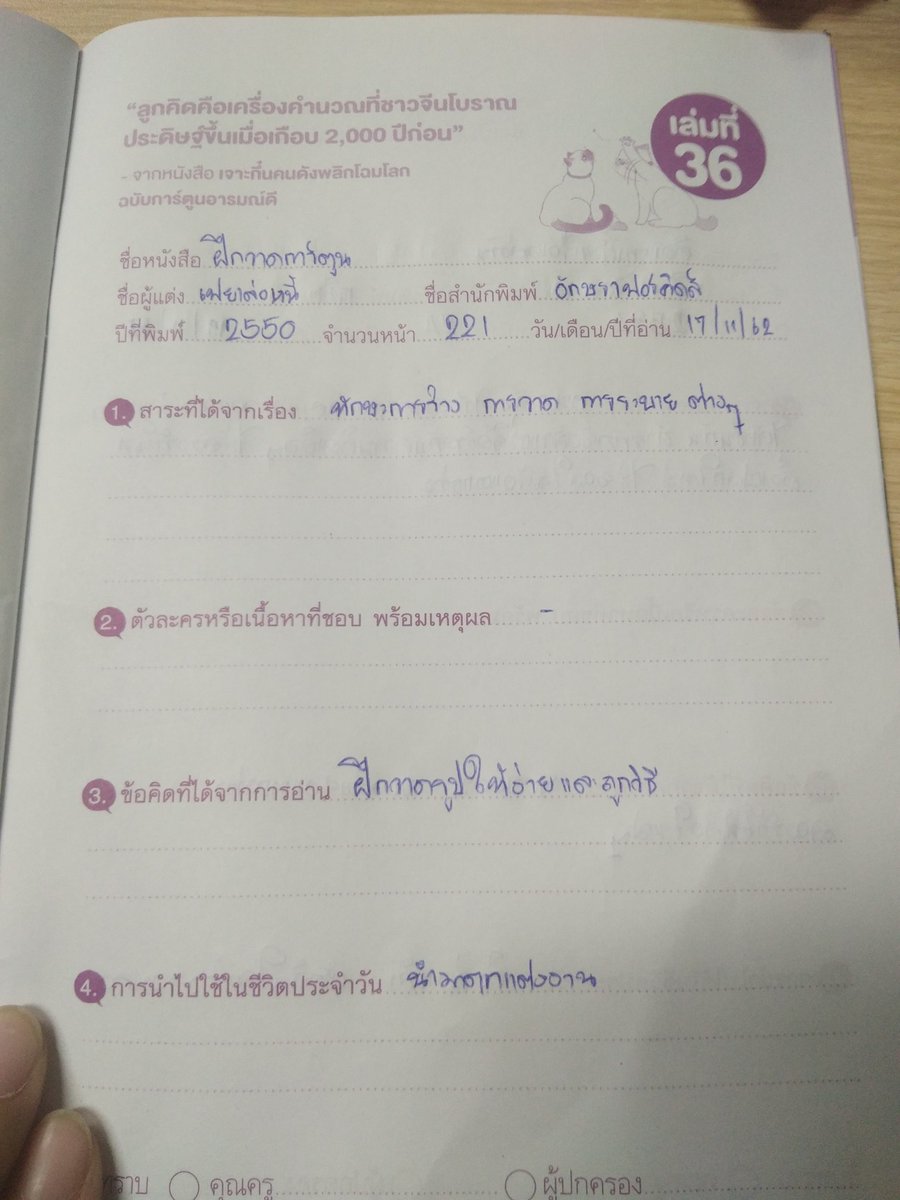 “ลูกคิดคือเครื่องคำนวณที่ชาวจีนโบราณ
ประดิษฐ์ขึ้นเมื่อเกือบ 2,000 ปีก่อน”
- จากหนังสือ เจาะกึ๋นคนดังพลิกโฉมโลก
ฉบับการ์ตูนอารมณ์ดี
เล่มที่
36
ชื่อหนังสือ ฝึกวาดการ์ตูน
ชื่อผู้แต่ง ชื่อสำนักพิมพ์
ปีที่พิมพ์ 2550 จำนวนหน้า 221 วัน/เดือน/ปีที่อ่าน 17/11/62
1. สาระที่ได้จากเรื่อง ทักษะการร่าง การวาด การระบาย ต่างๆ
2. ตัวละครหรือเนื้อหาที่ชอบ พร้อมเหตุผล -
3. ข้อคิดที่ได้จากการอ่าน ฝึกวาดรูปให้ง่ายและถูกวิธี
4. การนำไปใช้ในชีวิตประจำวัน นำมาตกแต่งงาน
ราบ คุณครู ผู้ปกครอง